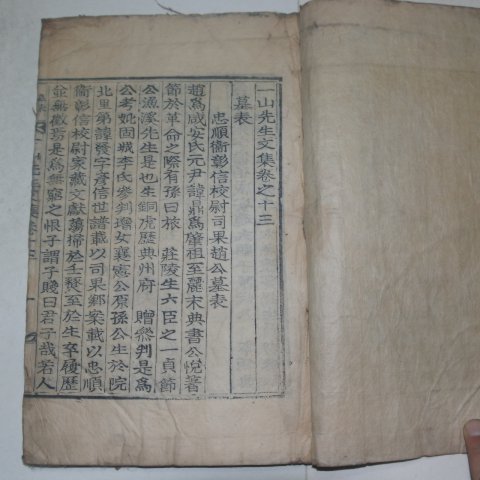 一山先生文集卷之十三
墓表
忠順衛彰信校尉司果趙公墓表
趙爲咸安氏元尹諱鼎爲肇祖至麗末典書公悅著
節於革命之際有孫曰旅 莊陵生六臣之一貞節
公漁溪先生是也生銅虎歷典州府 贈參判是爲
公考妣固城李氏參判增女襄憲公原孫公生於院
北里第諱發字彥信世譜載以司果鄉案載以忠順
衛彰信校尉家藏文獻蕩掃於壬癸至於生卒履歷
並無徵焉是爲無窮之恨子謂子賤曰君子哉若人